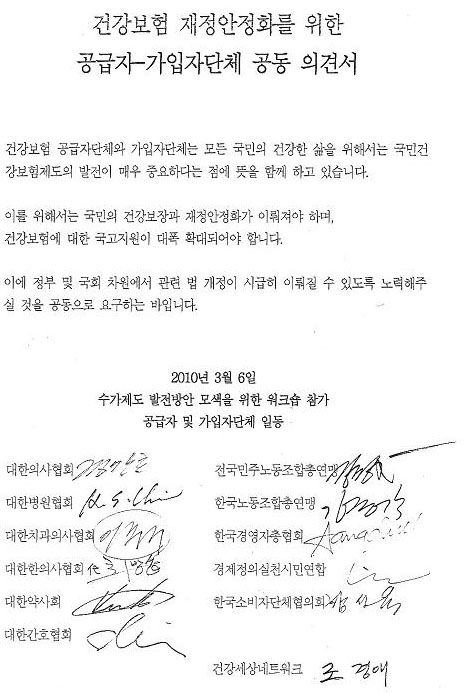 건강보험 재정안정화를 위한
공급자-가입자단체 공동 의견서
건강보험 공급자단체와 가입자단체는 모든 국민의 건강한 삶을 위해서는 국민건
강보험제도의 발전이 매우 중요하다는 점에 뜻을 함께 하고 있습니다.
이를 위해서는 국민의 건강보장과 재정안정화가 이뤄져야 하며,
건강보험에 대한 국고지원이 대폭 확대되어야 합니다.
이에 정부 및 국회 차원에서 관련 법 개정이 시급히 이뤄질 수 있도록 노력해주
실 것을 공동으로 요구하는 바입니다.
2010년 3월 6일
수가제도 발전방안 모색을 위한 워크숍 참가
공급자 및 가입자단체 일동
대한의사협회
대한병원협회
대한치과의사협회
대한한의사협회
대한약사회
대한간호협회
전국민주노동조합총연맹
한국노동조합총연맹
한국경영자총협회
경제정의실천시민연합
한국소비자단체협의회
건강세상네트워크 조경애